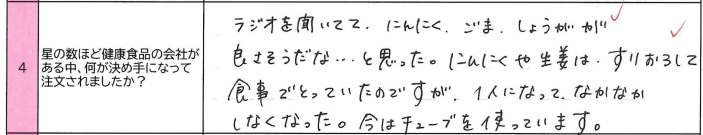 4
星の数ほど健康食品の会社が
ある中、何が決め手になって
注文されましたか？
ラジオを聞いてて、にんにく、ごま、しょうがが
良さそうだな…と思った。にんにくや生姜は、すりおろして
食事でとっていたのですが、1人になって、なかなか
しなくなった。今はチューブを使っています。